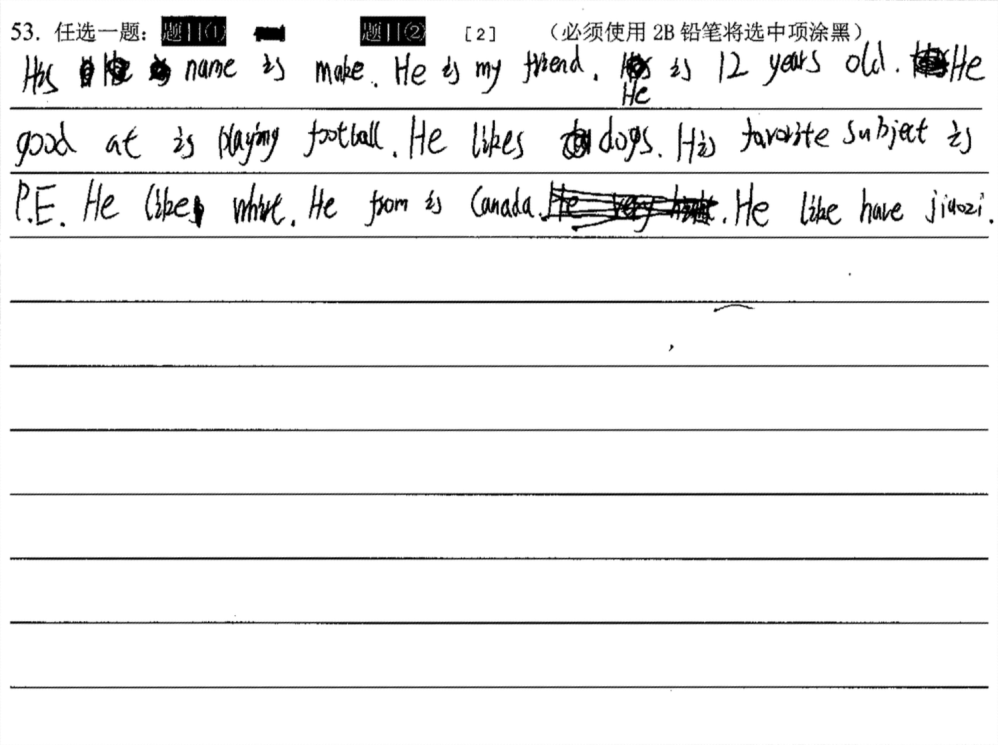 53. 任选一题: 题目① 题目② [2] (必须使用 2B 铅笔将选中项涂黑)
His name is make. He is my friend. He is 12 years old. He
good at is playing football. He likes dogs. His favorite subject is
P.E. He like white. He from is Canada. He like have jiaozi.